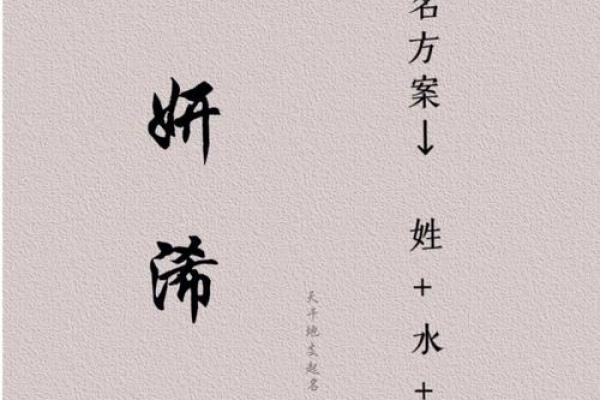 名方案↓ 姓+水+
天干地支起名
妍浠